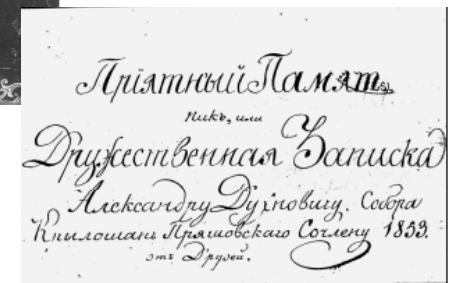 Пріятный Памят
никъ, или
Дружественная Записка
Александру Духновичу. Собора
Крылошанъ Пряшовскаго Сочлену 1853.
отъ Друзей.